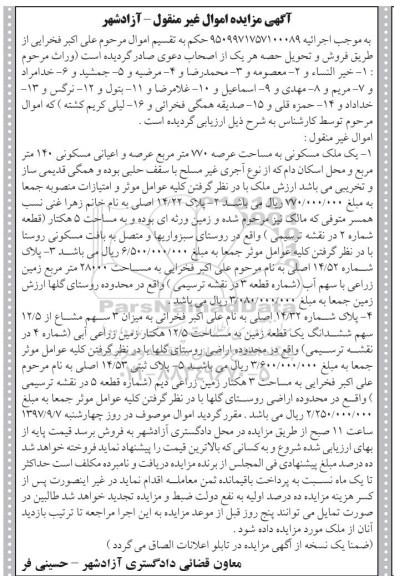 آگهی مزایده اموال غیر منقول - آزادشهر
به موجب اجرائیه ۹۵۰۹۹۷۱۷۵۷۱۰۰۰۸۹ حکم به تقسیم اموال مرحوم علی اکبر فخرایی از
طریق فروش و تحویل حصه هر یک از اصحاب دعوی صادر گردیده است (وراث مرحوم
: ۱- خیر النساء و ۲- معصومه و ۳- محمدرضا و ۴- مرضیه و ۵- جمشید و ۶- خدامراد
و ۷- مریم و ۸- مهدی و ۹- اسماعیل و ۱۰- غلامرضا و ۱۱- بتول و ۱۲- نرگس و ۱۳-
خداداد و ۱۴- حمزه قلی و ۱۵- صدیقه همگی فخرائی و ۱۶- لیلی کریم کشته ) که اموال
مرحوم توسط کارشناس به شرح ذیل ارزیابی گردیده است .
اموال غیر منقول :
۱- یک ملک مسکونی به مساحت عرصه ۷۷۰ متر مربع عرصه و اعیانی مسکونی ۱۴۰ متر
مربع و محل اسکان دام که از نوع آجری غیر مسلح با سقف حلبی بوده و همگی قدیمی ساز
و تخریبی می باشد ارزش ملک با در نظر گرفتن کلیه عوامل موثر و امتیازات منصوبه جمعا
به مبلغ ۷۷۰/۰۰۰/۰۰۰ ریال می باشد ۲- پلاک ۱۴/۲۲ اصلی به نام خانم زهرا غنی نسب
همسر متوفی که مالک نیز مرحوم شده و زمین ورثه ای بوده و به مساحت ۵ هکتار (قطعه
شماره ۲ در نقشه ترسیمی ) واقع در روستای سبزواریها و متصل به بافت مسکونی روستا
با در نظر گرفتن کلیه عوامل موثر جمعا به مبلغ ۶/۵۰۰/۰۰۰/۰۰۰ ریال می باشد ۳- پلاک
شماره ۱۴/۵۲ اصلی به نام مرحوم علی اکبر فخرایی به مساحت ۲۸۰۰۰ متر مربع زمین
زراعی با سهم آب (شماره قطعه ۳ در نقشه ترسیمی ) واقع در محدوده روستای گلها ارزش
زمین جمعا به مبلغ ۳/۰۸۰/۰۰۰/۰۰۰ ریال می باشد
۴- پلاک شماره ۱۴/۳۲ اصلی به نام علی اکبر فخرائی به میزان ۳ سهم مشاع از ۱۲/۵
سهم ششدانگ یک قطعه زمین به مساحت ۱۲/۵ هکتار زمین زراعی آبی (شماره ۴ در
نقشه ترسیمی) واقع در محدوده اراضی روستای گلها با در نظر گرفتن کلیه عوامل موثر
جمعا به مبلغ ۳/۶۰۰/۰۰۰/۰۰۰ ریال می باشد ۵- پلاک ثبتی ۱۴/۵۳ اصلی به نام مرحوم
علی اکبر فخرایی به مساحت ۳ هکتار زمین زراعی دیم (شماره قطعه ۵ در نقشه ترسیمی
) واقع در محدوده اراضی روستای گلها با در نظر گرفتن کلیه عوامل موثر جمعا به مبلغ
۲/۲۵۰/۰۰۰/۰۰۰ ریال می باشد . مقرر گردید اموال موصوف در روز چهارشنبه ۱۳۹۷/۹/۷
ساعت ۱۱ صبح از طریق مزایده در محل دادگستری آزادشهر به فروش برسد قیمت پایه از
بهای ارزیابی شده شروع و به کسانی که بالاترین قیمت را پیشنهاد نماید فروخته خواهد شد
ده درصد مبلغ پیشنهادی فی المجلس از برنده مزایده دریافت و نامبرده مکلف است حداکثر
تا یک ماه نسبت به پرداخت باقیمانده ثمن معامله اقدام نماید در غیر اینصورت پس از
کسر هزینه مزایده ده درصد اولیه به نفع دولت ضبط و مزایده تجدید خواهد شد طالبین در
صورت تمایل می توانند پنج روز قبل از موعد مزایده به این اجرا مراجعه تا ترتیب بازدید
آنان از ملک مورد مزایده داده شود .
(ضمنا یک نسخه از آگهی مزایده در تابلو اعلانات الصاق می گردد )
معاون قضائی دادگستری آزادشهر - حسینی فر